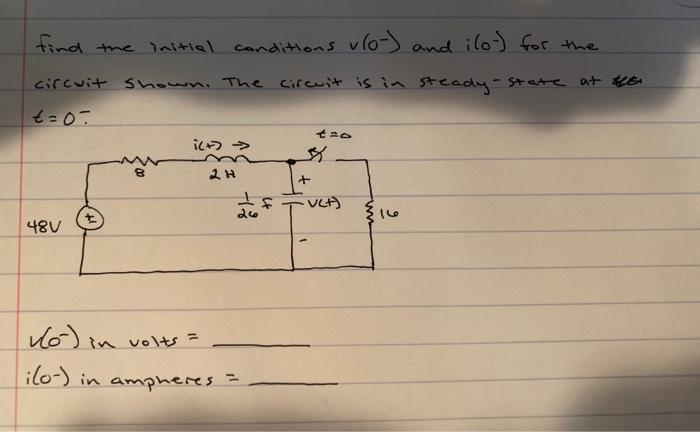 find the initial conditions v(0-) and i(0-) for the
circuit shown. The circuit is in steady-state at
t=0-.
t=0
i(t) →
8
2 H
+
1/26 f
v(t)
16
48V
±
-
v(0-) in volts =
i(0-) in ampheres =